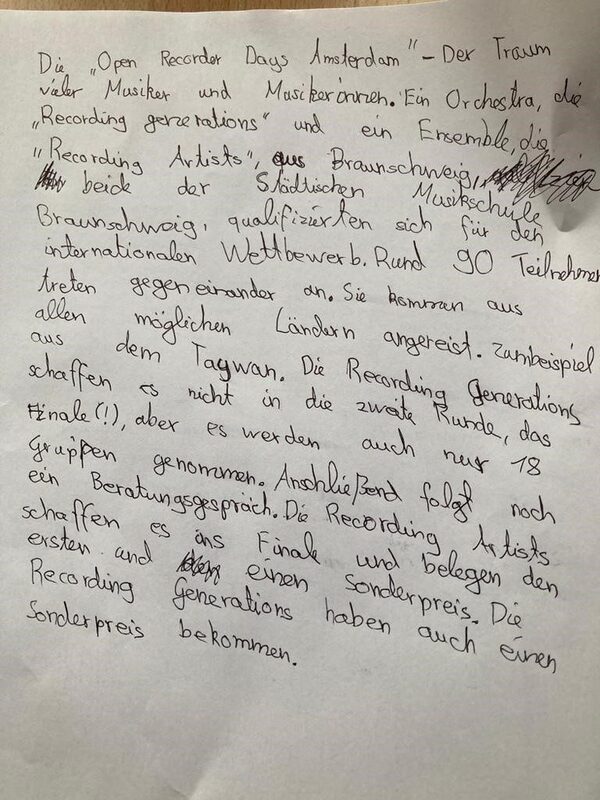 Die „Open Recorder Days Amsterdam" – Der Traum
vieler Musiker und Musikerinnen. Ein Orchestra, die
„Recording generations" und ein Ensemble, die
"Recording Artists", aus Braunschweig,
beide der Städtischen Musikschule
Braunschweig, qualifizierten sich für den
internationalen Wettbewerb. Rund 90 Teilnehmer
treten gegeneinander an. Sie kommen aus
allen möglichen Ländern angereist. Zumbeispiel
aus dem Taywan. Die Recording Generations
schaffen es nicht in die zweite Runde, das
Finale (!), aber es werden auch nur 18
Gruppen genommen. Anschließend folgt noch
ein Beratungsgespräch. Die Recording Artists
schaffen es ins Finale und belegen den
ersten und einen Sonderpreis. Die
Recording Generations haben auch einen
Sonderpreis bekommen.